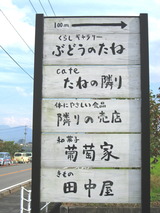 100m
くらしギャラリー
ぶどうのたね
cafe
たねの隣り
体にやさしい食品
隣りの売店
和菓子
葡萄家
きもの
田中屋